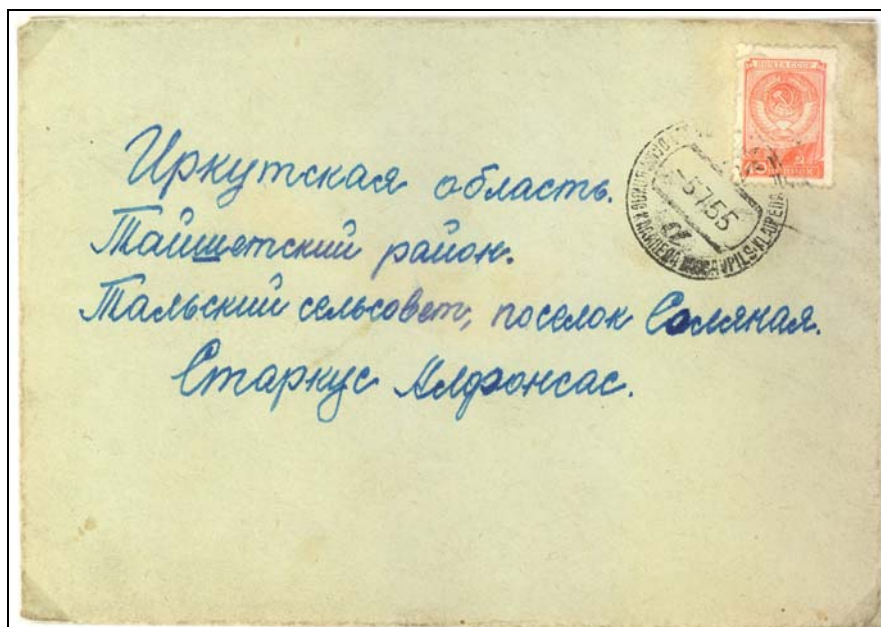 Иркутская область.
Тайшетский район.
Тальский сельсовет, поселок Соляная.
Старкус Алфонсас.
ПОЧТА СССР
-5755